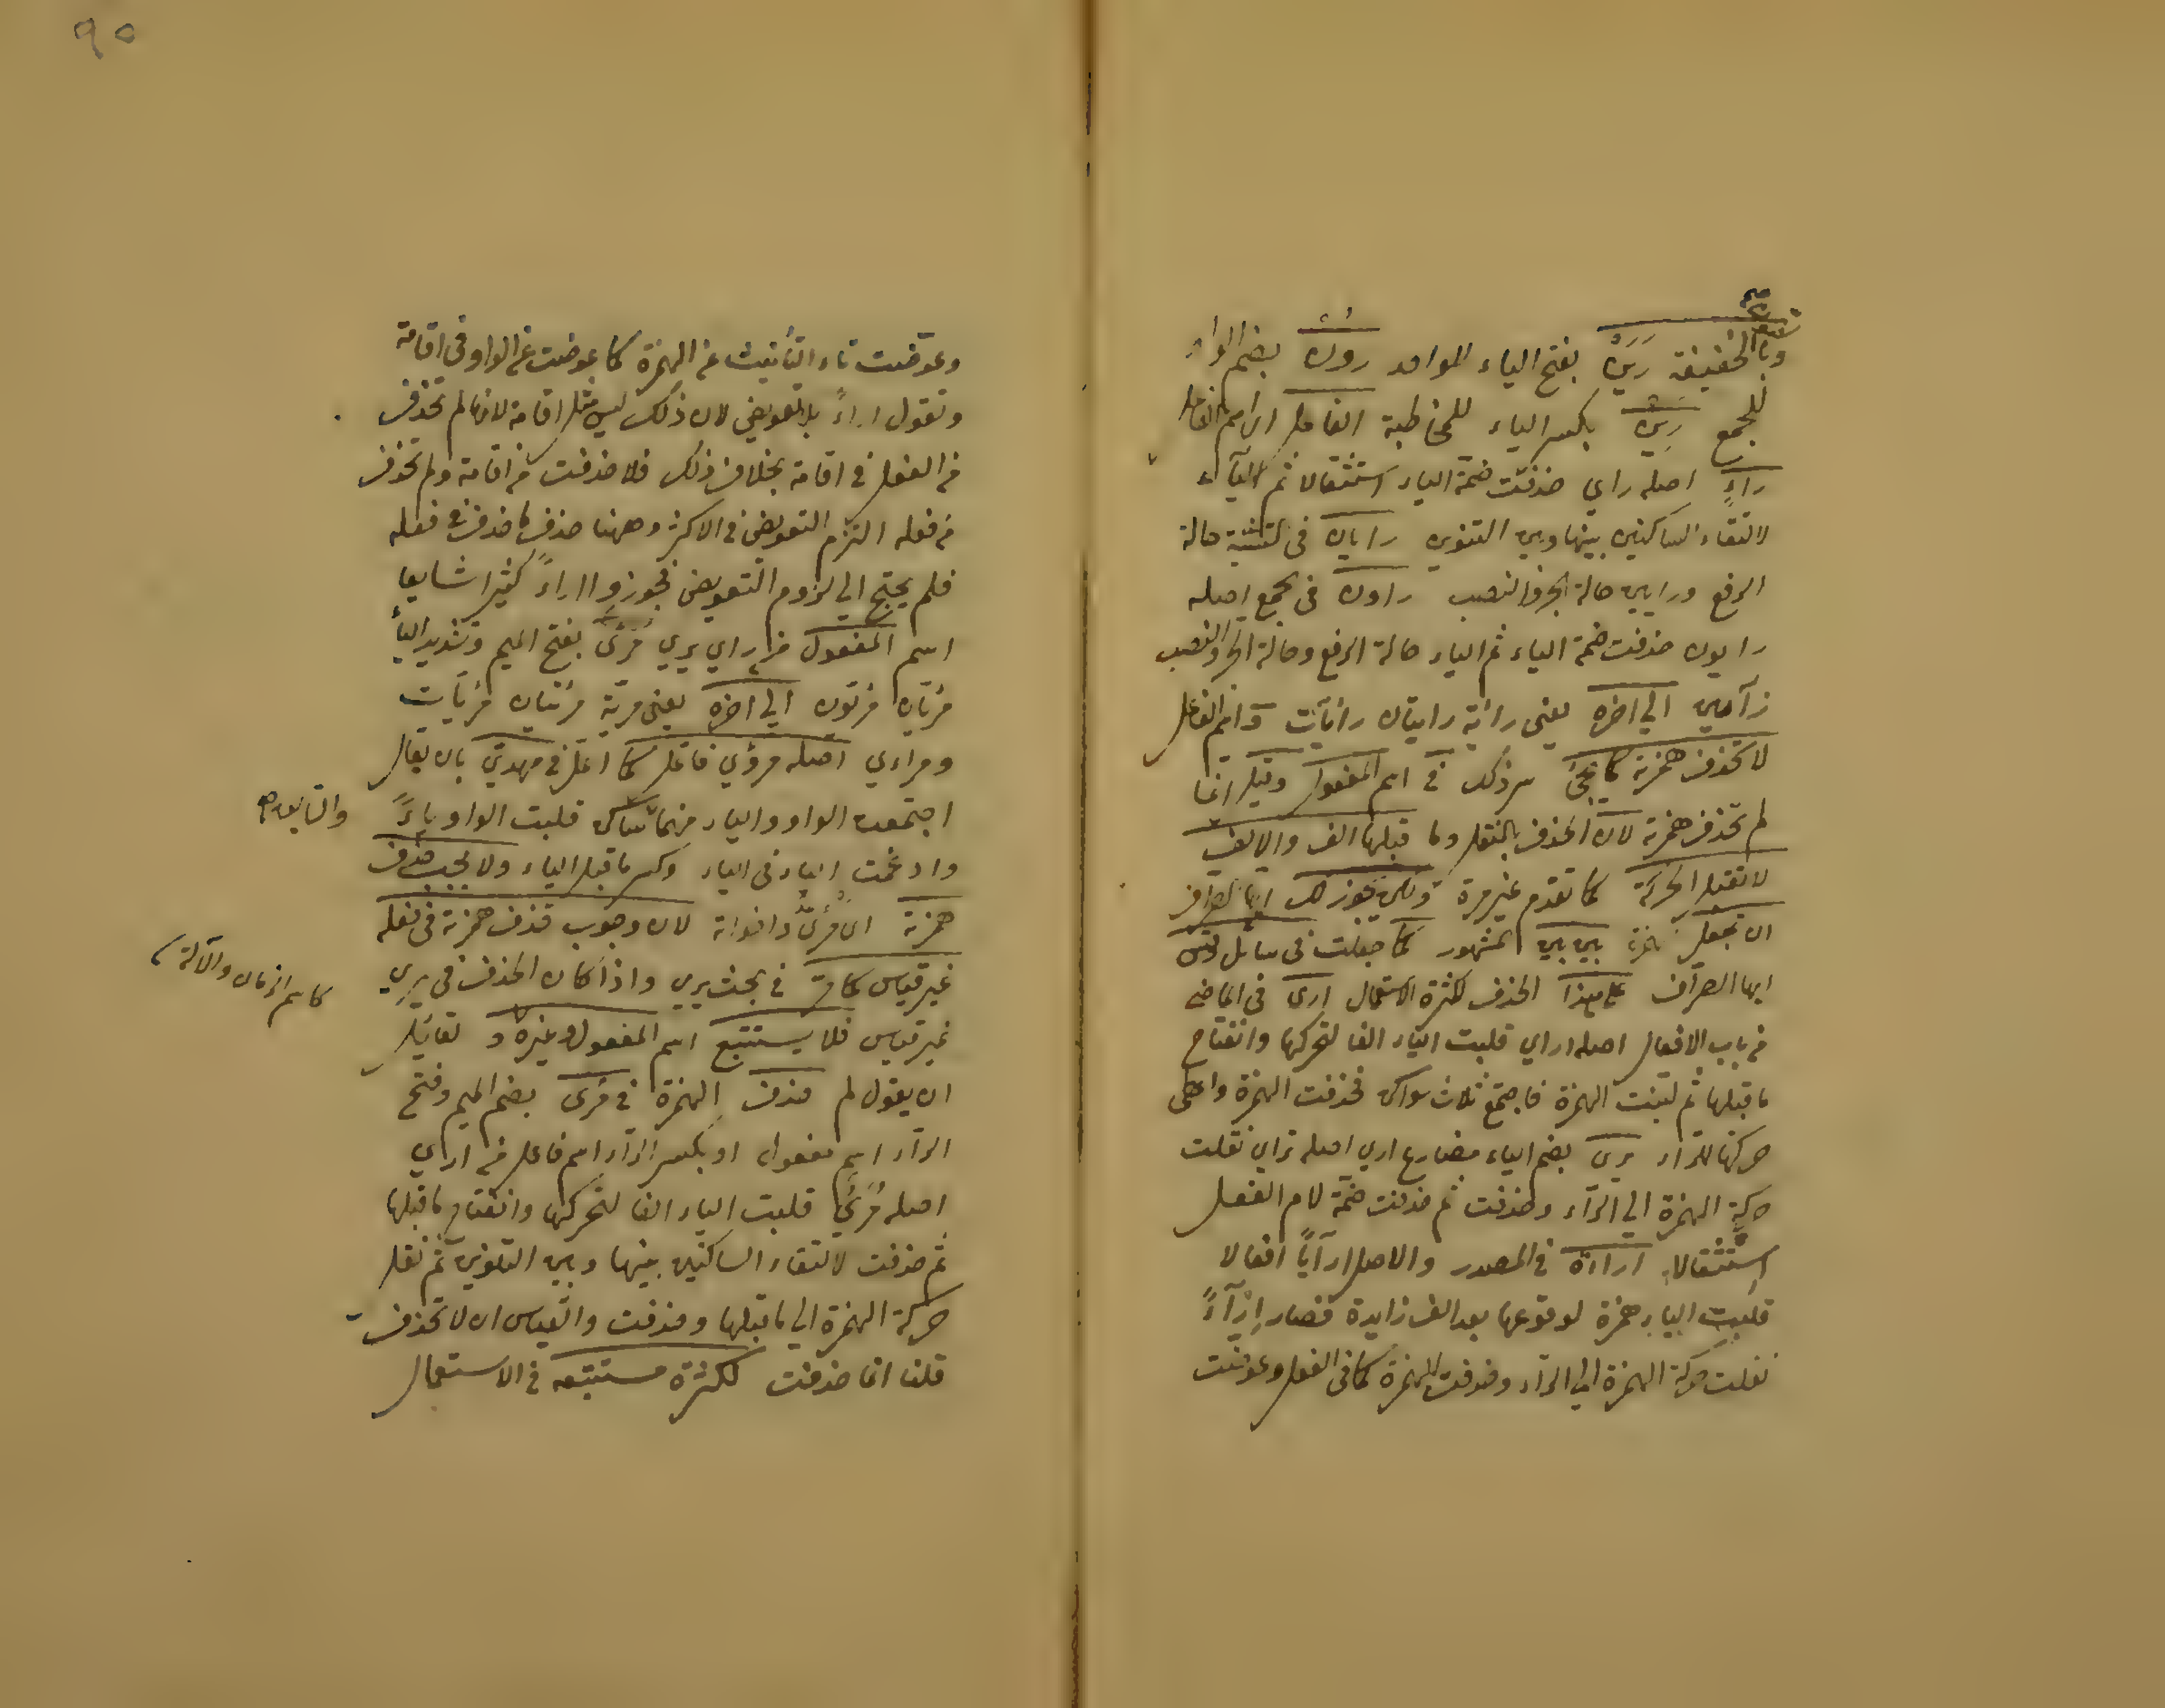 وبالخفيفة رَيَنْ بفتح الياء للواحد رون بضم الواو
للجمع رين بكسر الياء للمخاطبة الفاعل اي اسم الفاعل
راءٍ اصله راي حذفت ضمة الياء استثقالا ثم الياء
لالتقاء الساكنين بينها وبين التنوين رايان في التثنية حالة
الرفع ورايين حالة الجر والنصب راون في الجمع اصله
رايون حذفت ضمة الياء ثم الياء حالة الرفع وحالة الجر والنصب
رآيين الي اخره يعني رائة رايتان رائيات واسم الفاعل
لا تحذف همزته كما يجئ ذلك في اسم المفعول وقيل انما
لم تحذف همزته لان الحذف بالنقل وما قبلها الف والالف
لا تقبل الحركة كما تقدم غير مرة ولكن يجوز لك ايها الصراف
ان تجعل همزته بين بين المشهور كما جعلت في سائل وقس
ايها الصراف علي هذا الحذف لكثرة الاستعمال اري في الماضي
من باب الافعال اصله اراي قلبت الياء الفا لتحركها وانفتاح
ما قبلها ثم لينت الهمزة فاجتمع ثلاث سواكن فحذفت الهمزة واعطي
حركتها للراء يري بضم الياء مضارع اري اصله يراي نقلت
حركة الهمزة الي الراء وحذفت ثم حذفت ضمة لام الفعل
استثقالا اراءة في المصدر والاصل ارآيًا افعالا
قلبت الياء همزة لوقوعها بعد الف زايدة فصار اِرْآءً
نقلت حركة الهمزة الي الراء وحذفت الهمزة كما في الفعل وعوضت
٩٥
وعوضت تاء التأنيث عن الهمزة كما عوضت عن الواو في اقامة
وتقول اراءً بلا تعويض لان ذلك ليس مثل اقامة لانها لم تحذف
من الفعل في اقامة بخلاف ذلك فلما حذفت من اقامة ولم تحذف
من فعله التزم التعويض في الاكثر وههنا حذف كما حذف في فعله
فلم يحتج الي لزوم التعويض فجوزوا اراءً كثيرا شايعا
اسم المفعول من راي يري مَرْئيٌّ بفتح الميم وتشديد الياء
مرئيان مرئيون الي اخره يعني مرئية مرئيتان مرئيات
ومرائي اصله مرؤي فاعل كما اعل في مهدي بان يقال
اجتمعت الواو والياء منهما ساكن قلبت الواو ياءً
وادغمت الياء في الياء وكسر ما قبل الياء ولا يجب حذف
همزته اي مرئي واخواته لان وجوب حذف همزته في فعله
غير قياس كما مر في بحث يري واذا كان الحذف في يري
غير قياس فلا يستتبع اسم المفعول وغيره ولقائل
ان يقول لم حذف الهمزة في مُرَي بضم الميم وفتح
الراء اسم مفعول او بكسر الراء اسم فاعل من اراي
اصله مُرْئَيٌ قلبت الياء الفا لتحركها وانفتاح ما قبلها
ثم حذفت لالتقاء الساكنين بينها وبين التنوين ثم نقل
حركة الهمزة الي ما قبلها وحذفت والقياس ان لا تحذف
قلنا انما حذفت لكثرة مستتبعه في الاستعمال
كاسم الزمان والآلة